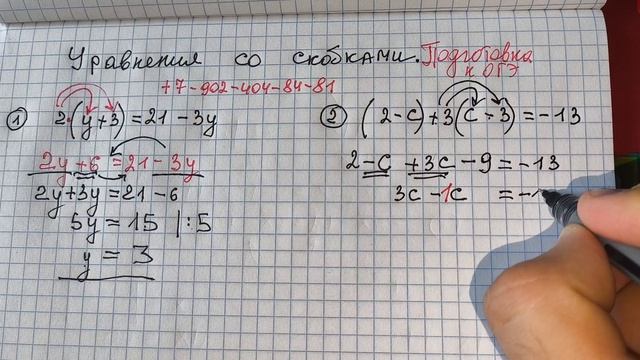 Уравнения со скобками. Подготовка к ОГЭ
+7-902-404-84-81
① 2·(y+3)=21-3y
2y+6=21-3y
2y+3y=21-6
5y=15 |:5
y=3
② (2-c)+3(c-3)=-13
2-c+3c-9=-13
3c-1c =-1